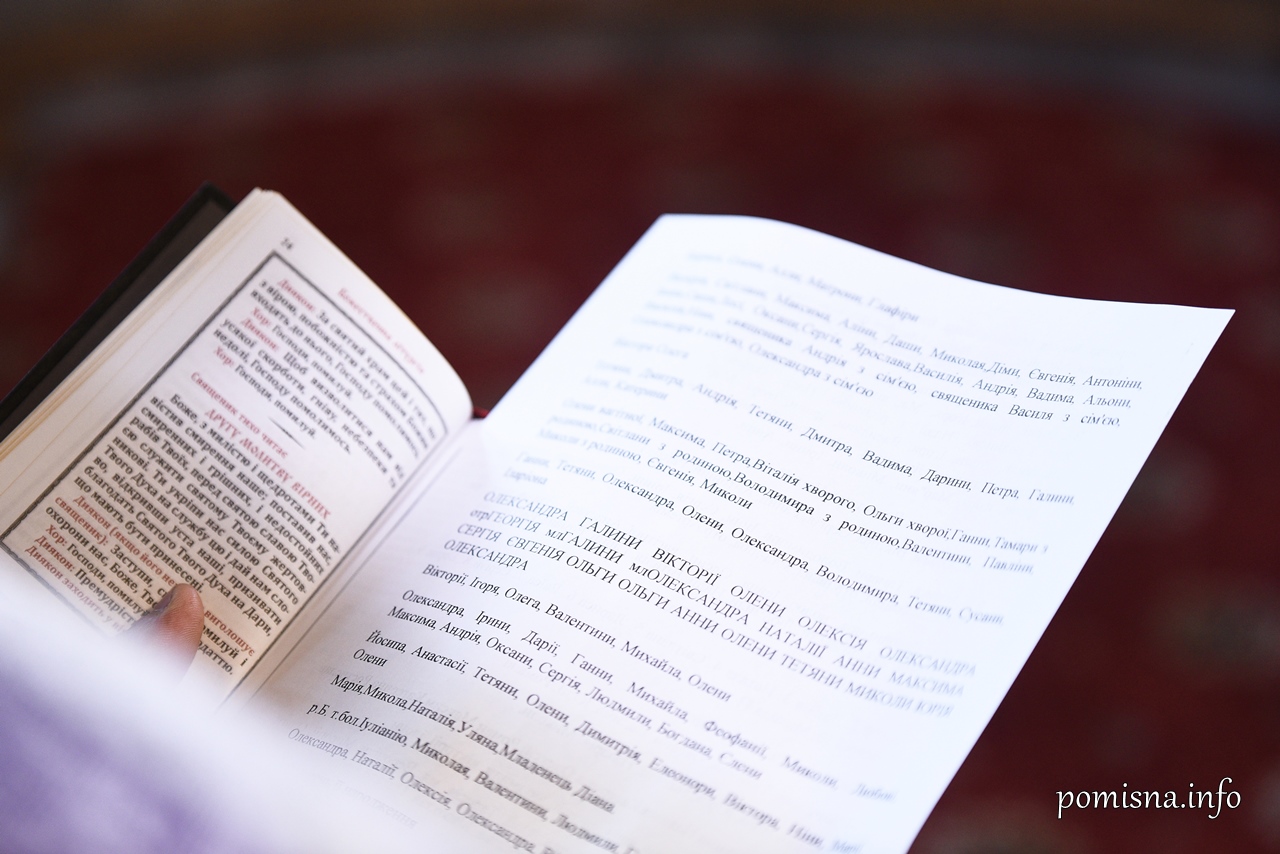 24
Божественна літургія
Диякон: За святий храм цей і тих, що
з вірою, побожністю та страхом Божим
входять до нього, Господу помолимось.
Хор: Господи, помилуй.
Диякон: Щоб визволитися нам від
усякої скорботи, гніву, небезпеки та
недолі, Господу помолимось.
Хор: Господи, помилуй.
Священик тихо читає
ДРУГУ МОЛИТВУ ВІРНИХ
Боже, з милістю і щедротами Ти
смирення наше,
смиренних і грішних, і недостойних
рабів Твоїх, перед святою славою Тво-
єю служити святому Твоєму жертов-
никові, Ти укріпи нас силою Святого
Твого Духа на службу цю і дай нам сло-
во, відкривши уста наші, призивати
благодать Святого Твого Духа на Дари,
що мають бути принесені.
Диякон (якщо його не виголошує
священик): Заступи, помилуй і
охорони нас, Боже, Твоєю благодаттю.
Хор: Господи, помилуй
Диякон: Премудрість
Диякон заходить у
Матрони, Глафіри
Максима, Аліни, Даши, Миколая,Діми, Євгенія, Антоніни,
Оксани,Сергія, Ярослава,Василія, Андрія, Вадима, Альони,
священика Андрія з сім'єю, священика Василя з сім'єю,
з сім'єю, Олександра з сім'єю
Дмитра, Андрія, Тетяни, Дмитра, Вадима, Дарини, Петра, Галини,
Катерини
Олени вагітної, Максима, Петра,Віталія хворого, Ольги хворої,Ганни,Тамари з
родиною,Світлани з родиною,Володимира з родиною,Валентини, Павлини,
Миколи з родиною, Євгенія, Миколи
Ганни, Тетяни, Олександра, Олени, Олександра, Володимира, Тетяни, Сусани,
ОЛЕКСАНДРА ГАЛИНИ ВІКТОРІЇ ОЛЕНИ ОЛЕКСІЯ ОЛЕКСАНДРА
отрГЕОРГІЯ млГАЛИНИ млОЛЕКСАНДРА НАТАЛІЇ АННИ МАКСИМА
СЕРГІЯ ЄВГЕНІЯ ОЛЬГИ ОЛЬГИ АННИ ОЛЕНИ ТЕТЯНИ МИКОЛИ ЮРІЯ
ОЛЕКСАНДРА
Вікторії, Ігоря, Олега, Валентини, Михайла, Олени
Олександра, Ірини, Дарії, Ганни, Михайла, Феофанії, Миколи, Любові
Максима, Андрія, Оксани, Сергія, Людмили, Богдана, Єлени
Йосипа, Анастасії, Тетяни, Олени, Димитрія, Елеонори, Віктора, Ніни,
Олени
Марія,Микола,Наталія,Уляна,Младенець Діана
р.Б. т.бол.Іуліанію, Миколая, Валентини, Людмили,
Олександра, Наталії, Олексія, Олександра,
pomisna.info